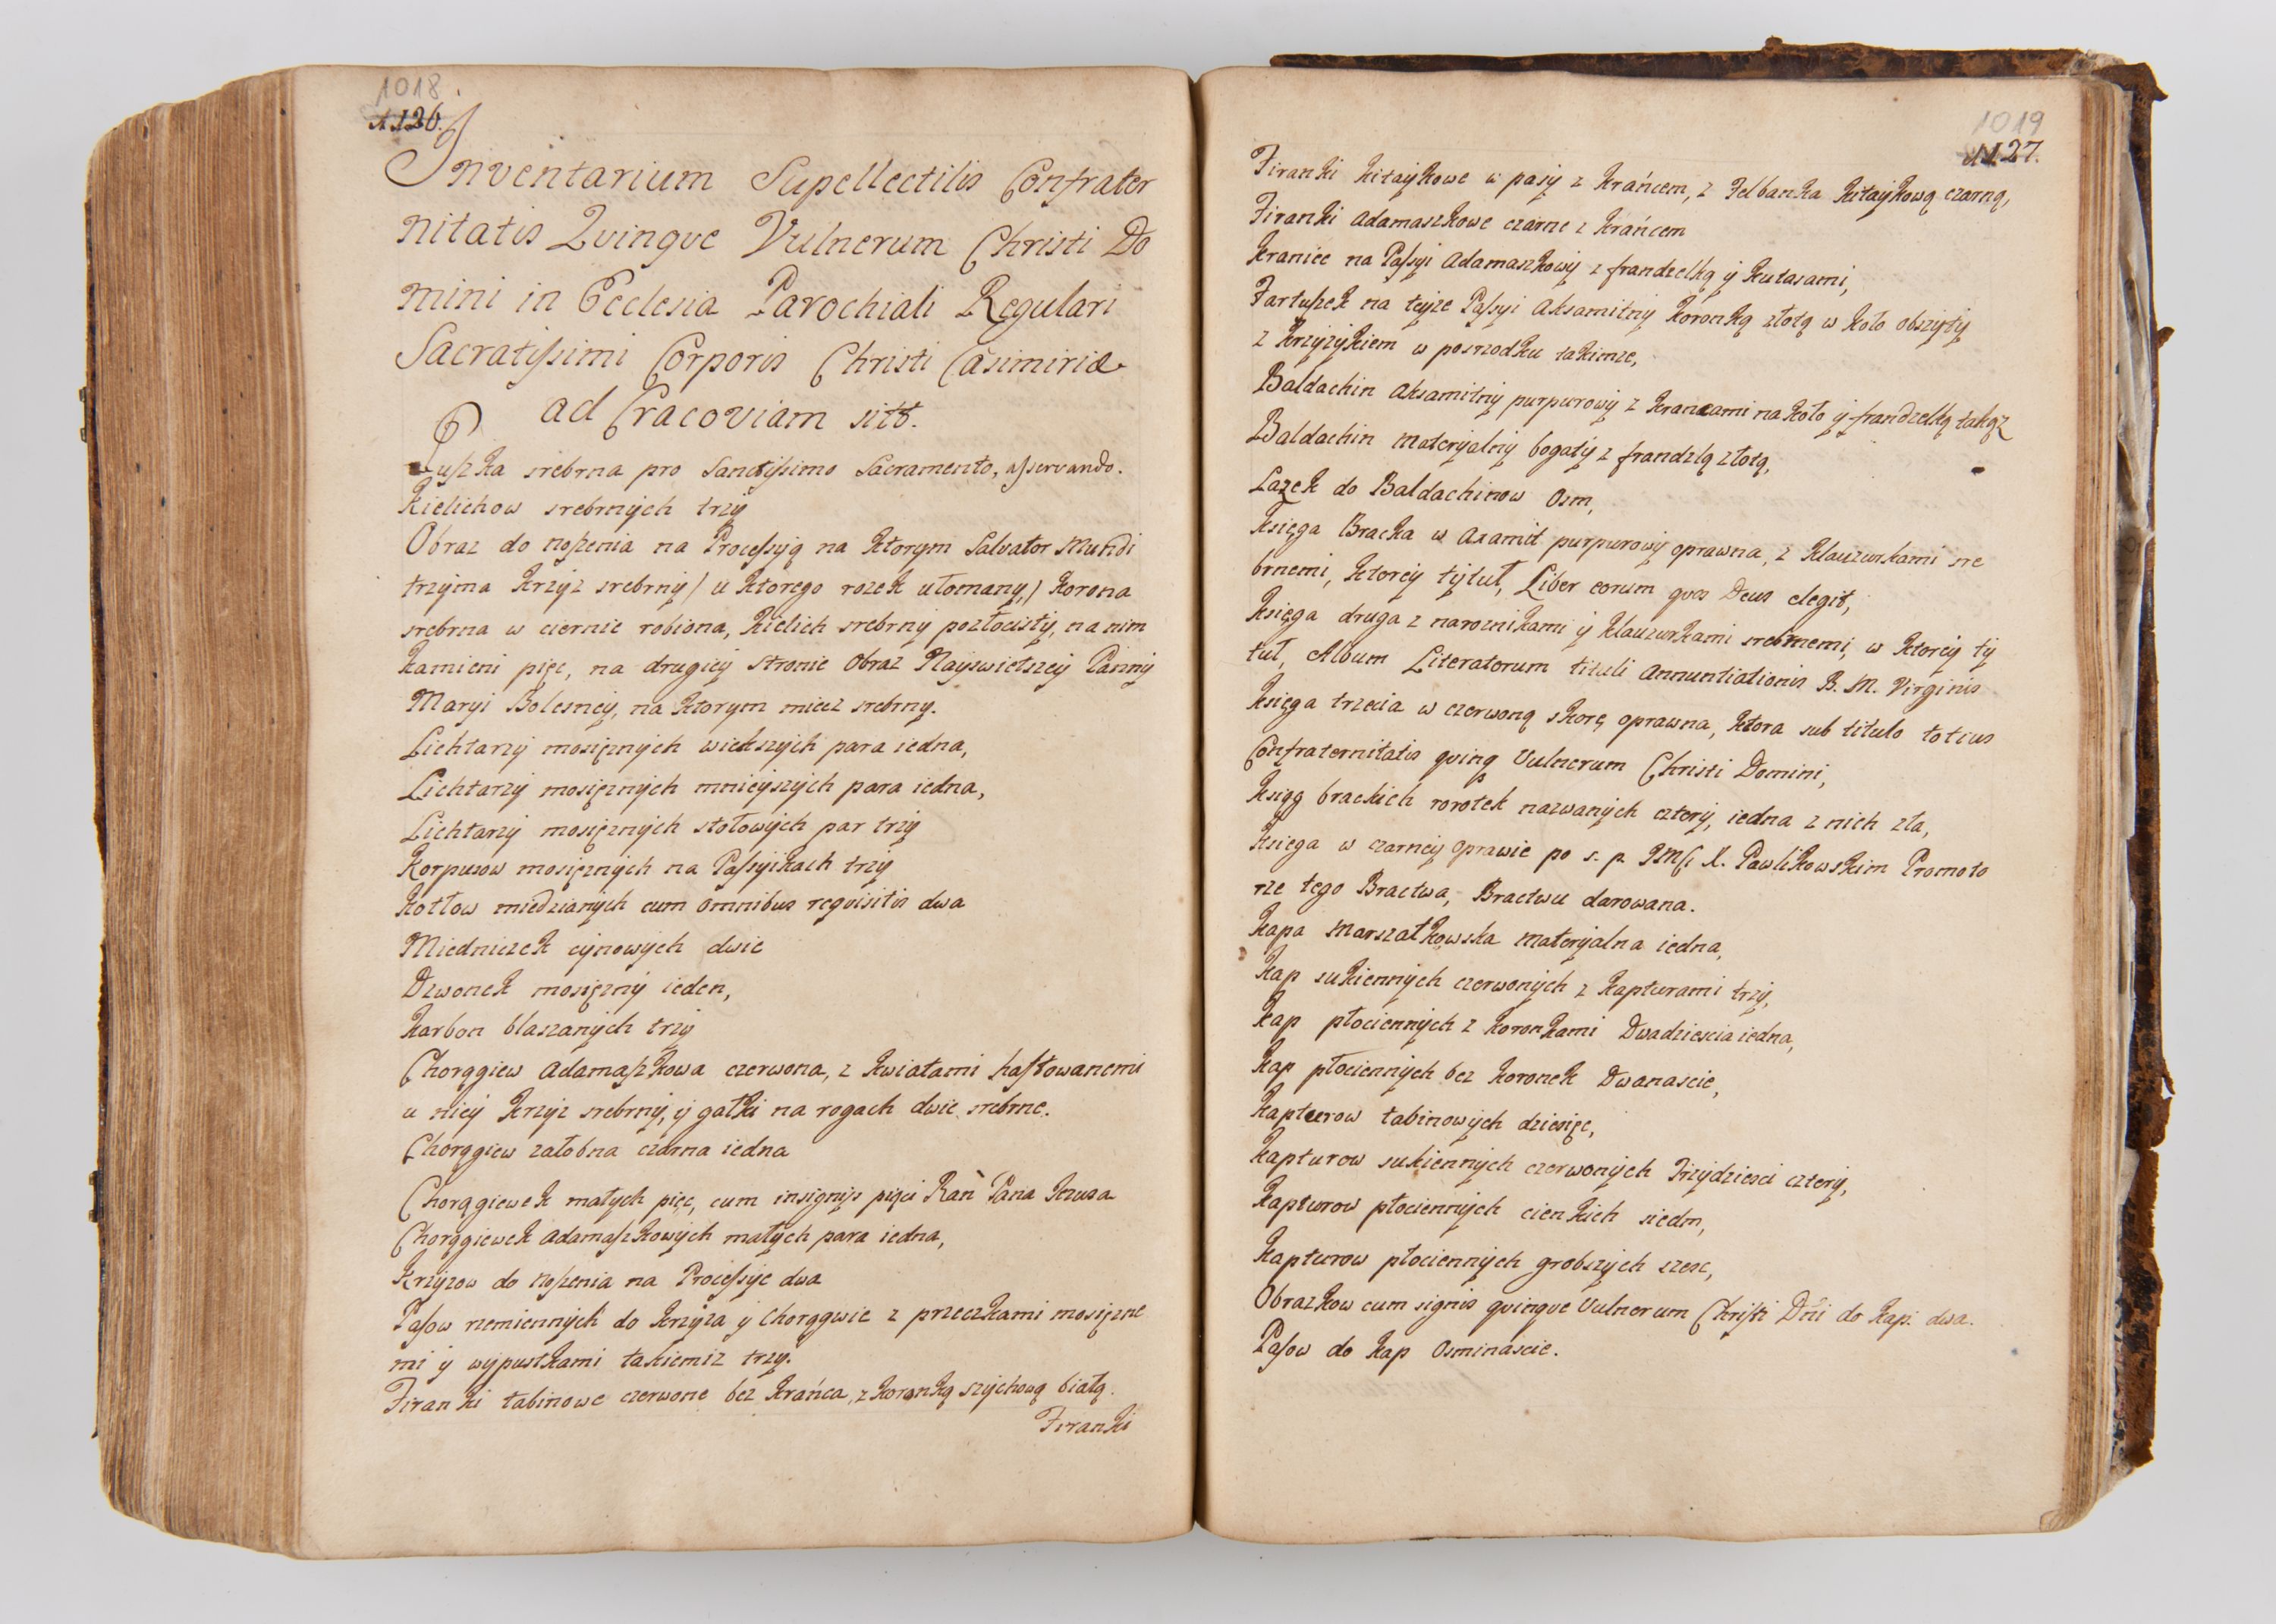 1018
1126.
Inventarium Supellectilis Confrater
nitatis Qvinqve Vulnerum Christi Do
mini in Ecclesia Parochiali Regulari
Sacratissimi Corporis Christi Casimiriæ
ad Cracoviam sitæ.
Puszka srebrna pro Sanctissimo Sacramento, asservando.
Kielichow srebrnych trzy
Obraz do noszenia na Processyą na ktorym Salvator Mundi
trzyma krzyz srebrny/ u ktorego rozek ułomany,/ korona
srebrna w ciernie robiona, kielich srebrny pozłocisty, na nim
kamieni pięc, na drugiey stronie Obraz Nayswietszey Panny
Maryi Bolesney, na ktorym miecz srebrny.
Lichtarzy mosięznych wiekszych para iedna,
Lichtarzy mosięznych mnieyszych para iedna,
Lichtarzy mosięznych stołowych par trzy
Korpusow mosięznych na Passyikach trzy
Kotłow miedzianych cum omnibus reqvisitis dwa
Miedniczek cynowych dwie
Dzwonek mosięzny ieden,
Karbon blaszanych trzy
Chorągiew Adamaszkowa czerwona, z kwiatami hastowanemi
u niey krzyz srebrny, y gałki na rogach dwie srebrne.
Chorągiew załobna czarna iedna
Chorągiewek małych pięc, cum insignijs pięci Ran Pana Jezusa
Chorągiewek Adamaszkowych małych para iedna,
Krzyzow do noszenia na Processye dwa
Pasow rzemiennych do krzyza y Chorągwie z przeczkami mosięzne
mi y wypustkami takiemiz trzy.
Firanki tabinowe czerwone bez kranca, z koronką szychową białą.
Firanki
1019
1127.
Firanki kitaykowe w pasy z krańcem, z Felbanka kitaykową czarną,
Firanki Adamaszkowe czarne z krańcem
Kraniec na Passyi Adamaszkowy z frandzelką y kutasami,
Fartuszek na teyze Passyi Aksamitny koronką złotą w koło obszyty
z krzyzykiem w posrzodku takimze,
Baldachin Aksamitny purpurowy z krancami na koło y frandzelką takąz
Baldachin materyalny bogaty z frandzlą złotą,
Lazek do Baldachinow Osm,
Księga Bracka w Axamit purpurowy oprawna, z klauzurkami sre
brnemi, ktorey tytuł, Liber eorum qvos Deus elegit,
Księga druga z naroznikami y klauzurkami srebrnemi, w ktorey ty
tuł, Album Literatorum tituli Annuntiationis B. M. Virginis
Księga trzecia w czerwoną skorę oprawna, ktora sub titulo totius
Confraternitatis qvinq Vulnerum Christi Domini,
Ksiąg brackich rorotek nazwanych cztery, iedna z nich zła,
Księga w czarney oprawie po s. p. JMCi X. Pawlikowskim Promoto
rze tego Bractwa, Bractwu darowana.
Kapa Marszałkowska materyalna iedna,
Kap sukiennych czerwonych z kapturami trzy,
Kap płociennych z koronkami Dwadziescia iedna,
Kap płociennych bez koronek Dwanascie,
Kapturow tabinowych dziesięc,
Kapturow sukiennych czerwonych Trzydziesci cztery,
Kapturow płociennych cienkich siedm,
Kapturow płociennych grobszych szesc,
Obrazkow cum signis qvinqve Vulnerum Christi Dni do kap. dwa.
Pasow do kap Osminascie.